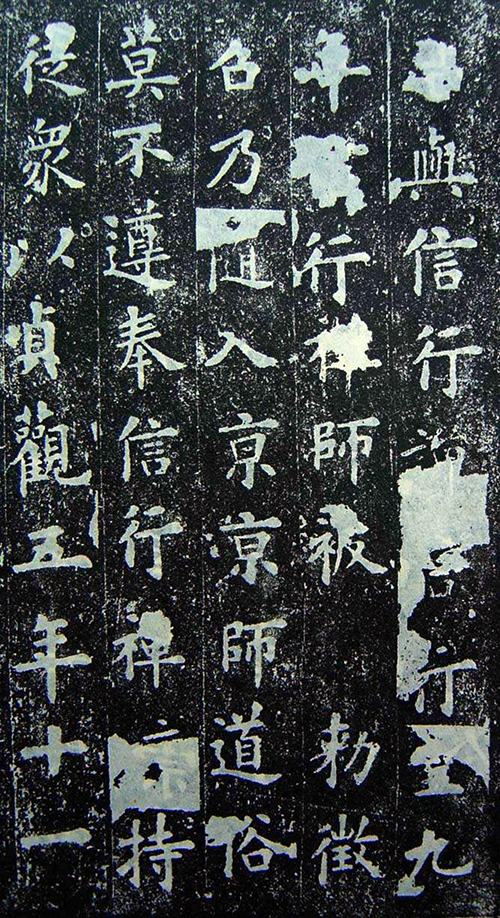 與信行行九
年行禪師被勅徵
召乃入京京師道俗
莫不遵奉信行禪持
徒眾以貞觀五年十一